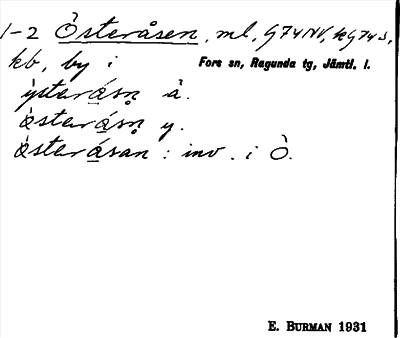 1-2 Österåsen, ml, G74NV, kG74S,
kb, by i Fors sn, Ragunda tg, Jämtl. l.
ỳsterásn̥ ä.
ö̀sterásn̥ y.
ö̀sterásan : inv. i Ö.
E. BURMAN 1931